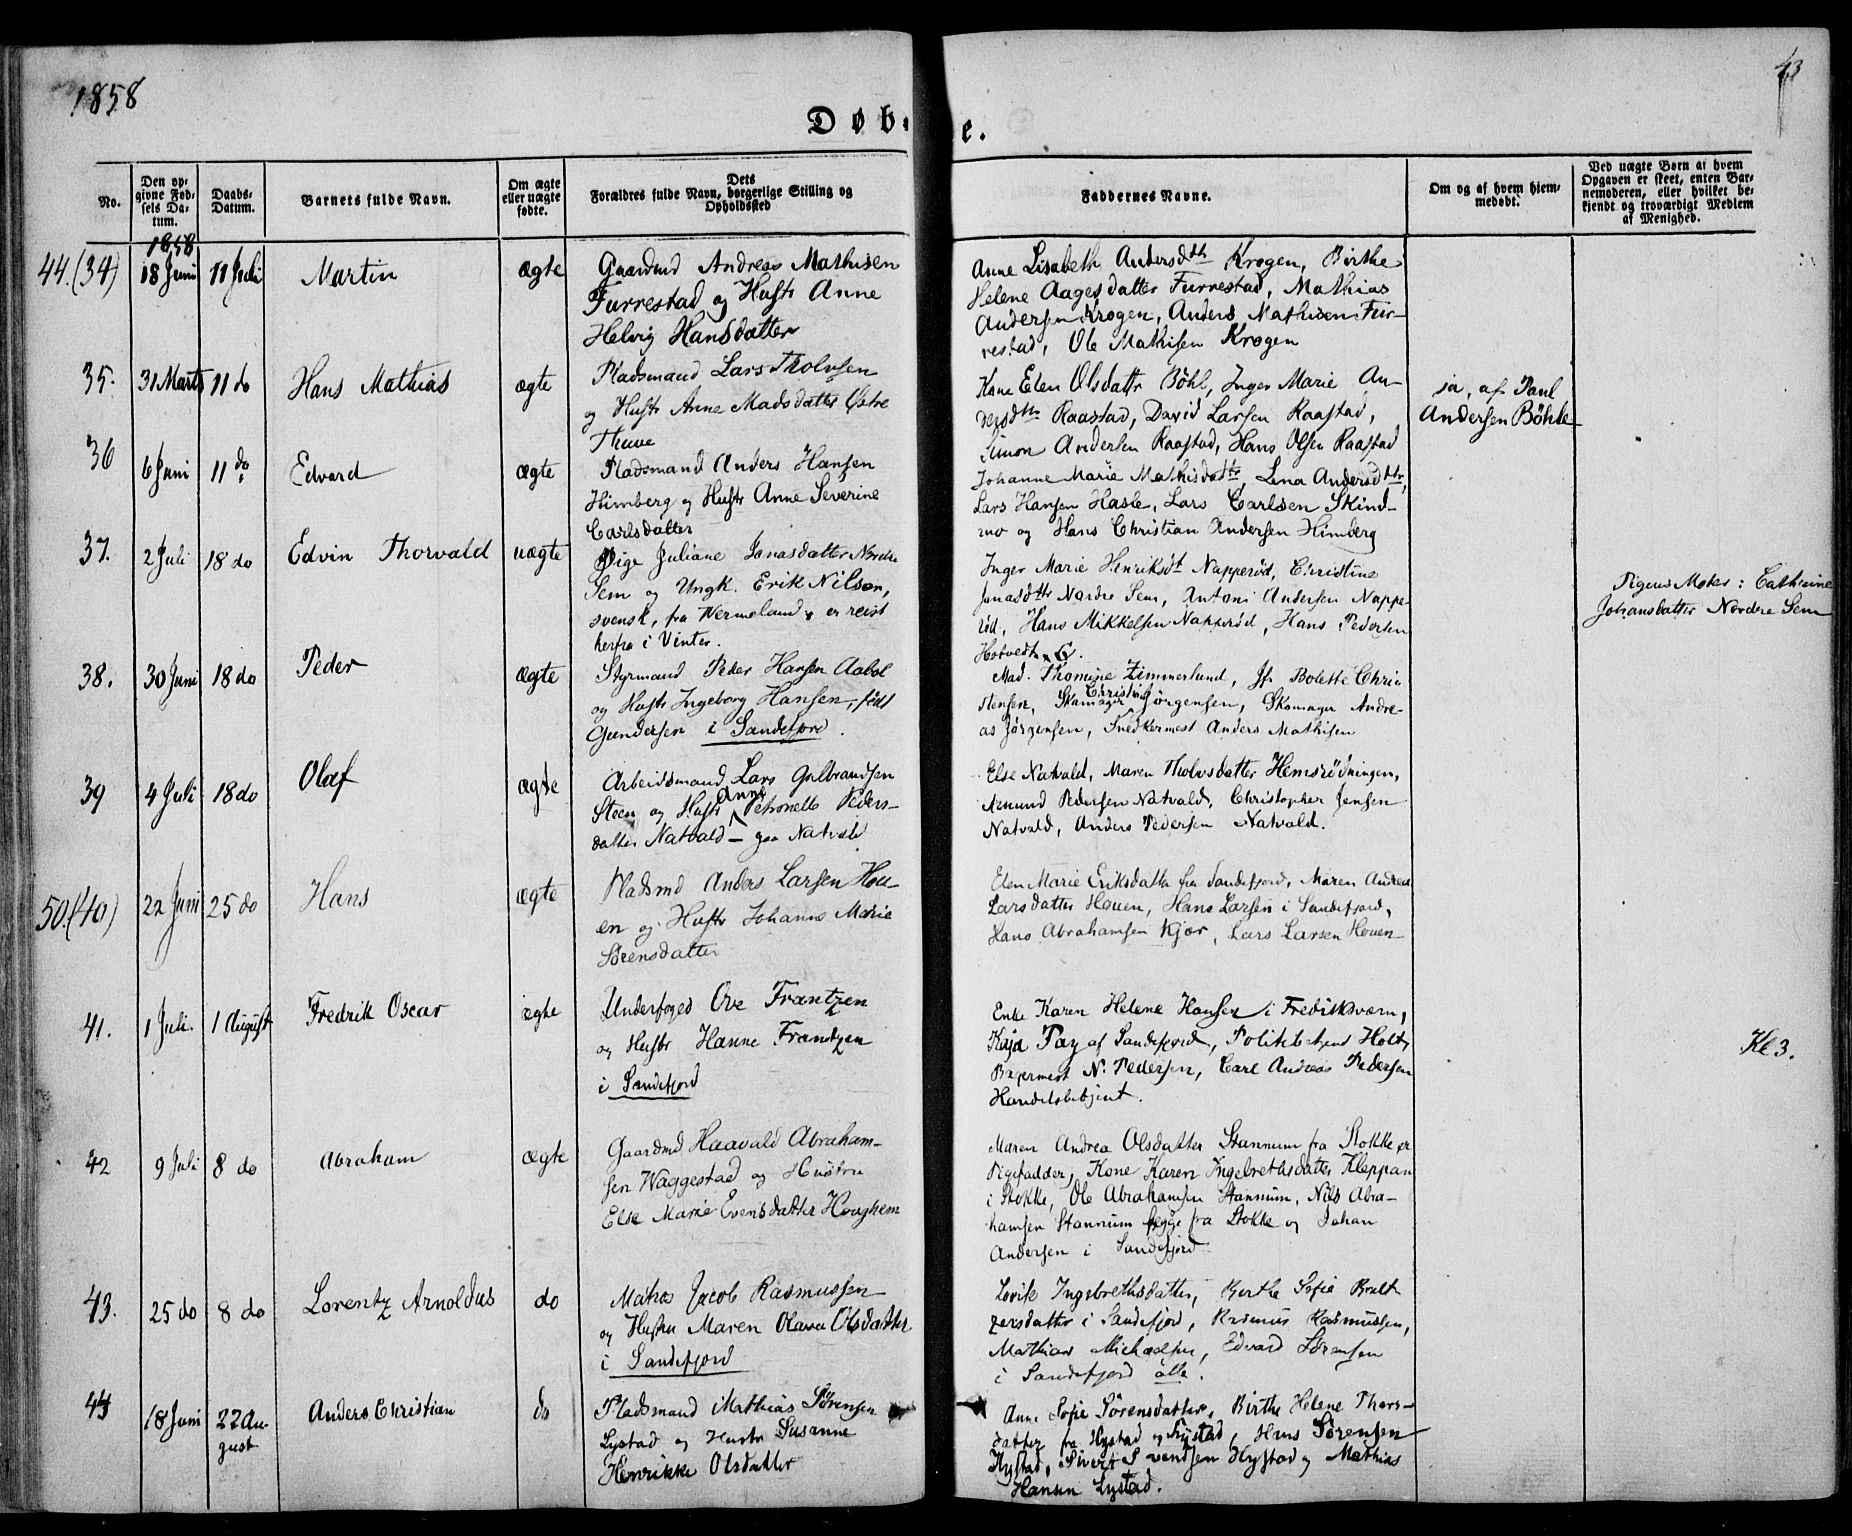 1858
43
Døb- e.
No.
Den op-
givne Fød-
sels Da-
tum.
Daabs-
Datum.
Barnets fulde Navn.
Om ægte
eller uægte
fødte.
Dets
Forældres fulde Navn, borgerlige Stilling og
Opholdssted
Faddernes Navne.
Om og af hvem hjem-
medøbt.
Ved uægte Børn af hvem
Opgaven er skeet, enten Bar-
nemoderen, eller hvilket be-
kjendt og troværdigt Medlem
af Menighed.
1858
44.(34) 18 Juni 11 Juli Martin ægte
Gaardmd Andreas Mathisen
Furrestad og Hustr Anne
Helvig Hansdatter
Anne Lisabeth Andersdtr Krogen, Birthe
Helene Aagesdatter Furrestad, Mathias
Andersen Krogen, Anders Mathisen Fur-
restad, Ole Mathisen Krogen
35. 31 Marts 11 do Hans Mathias ægte
Pladsmand Lars Tholvsen
og Hustr Anne Madsdatter Østre
Thuve
Kone Elen Olsdattr Bøhl, Inger Marie An-
dersdtr Raastad, David Larsen Raastad,
Simon Andersen Raastad, Hans Olsen Raastad
ja, af Paul
Andersen Bøhle
36 6 Juni 11 do Edvard ægte
Pladsmand Anders Hansen
Himberg og Hustr Anne Severine
Carlsdatter
Johanne Marie Mathisdattr, Lena Andersdtr,
Lars Hansen Hasle, Lars Carlsen Skind-
mo og Hans Christian Andersen Himberg
37. 2 Juli 18 do Edvin Thorvald uægte
Pige Juliane Jonasdatter Nordre
Sem og Ungk. Erik Nilsen,
svensk, fra Wermeland, er reist
herfra i Vinter.
Inger Marie Henriksdt Napperød, Christine
Jonasdtr Nordre Sem, Antoni Andersen Nappe-
rød, Hans Mikkelsen Napperød, Hans Pedersen
Hotvedt
Pigens Moder: Cathrine
Johansdatter Nordre Sem
38. 30 Juni 18 do Peder ægte
Styrmand Peder Hansen Aabol
og Hustr Ingeborg Hansen, født
Gundersen i Sandefjord.
Mad. Thomine Zimmerlund, Jfr Bolette Chri-
stensen, Skomager Christian Jørgensen, Skomager Andre-
as Jørgensen, Snedkermest Anders Mathisen
39 4 Juli 18 do Olaf ægte
Arbeidsmand Lars Gulbrandsen
Steen og Hustr Anne Petronelle Peders-
datter Natvald – paa Natvald
Else Natvald, Maren Tholvsdatter Hemsrødningen,
Amund Pedersen Natvald, Christopher Jensen
Natvald, Anders Pedersen Natvald.
50.(40) 22 Juni 25 do Hans ægte
Pladsmd Anders Larsen Hou-
en og Hustr Johanne Marie
Sørensdatter
Elen Marie Eriksdatter fra Sandefjord, Maren Andrea
Larsdatter Houen, Hans Larsen i Sandefjord,
Hans Abrahamsen Kjær, Lars Larsen Houen
41. 1 Juli. 1 August Fredrik Oscar ægte
Underfoged Ove Frantzen
og Hustr Hanne Frantzen
i Sandefjord
Enke Karen Helene Hansen i Fredriksværn,
Kaja Pay af Sandefjord, Politibetjent Holt,
Bagermest N. Pedersen, Carl Andreas Pedersen
Handelsbetjent.
Kl 3.
42 9 Juli 8 do Abraham ægte
Gaardmd Haavald Abraham-
sen Waggestad og Hustru
Else Marie Evensdatter Haughem
Maren Andrea Olsdatter Stannum fra Stokke er
Pigefadder, Kone Karen Ingebrethsdatter Kleppan
i Stokke, Ole Abrahamsen Stannum, Nils Abra-
hamsen Stannum begge fra Stokke og Johan
Andersen i Sandefjord
43. 25 do 8 do Lorentz Arnoldus do
Matros Jacob Rasmussen
og Hustru Maren Olava Olsdatter
i Sandefjord
Lovise Ingebrethsdatter, Berthe Sofie Balt-
zersdatter i Sandefjord, Rasmus Rasmussen,
Mathias Michaelsen, Edvard Sørensen
i Sandefjord alle.
44 18 Juni 22 Au-
gust
Anders Christian do
Pladsmand Mathias Sørensen
Lystad og Hustr Susanne
Henrikke Olsdatter
Anne Sofie Sørensdatter, Birthe Helene Thors-
datter fra Hystad og Lystad, Hans Sørensen
Hystad, Sivert Svendsen Hystad og Mathias
Hansen Lystad.